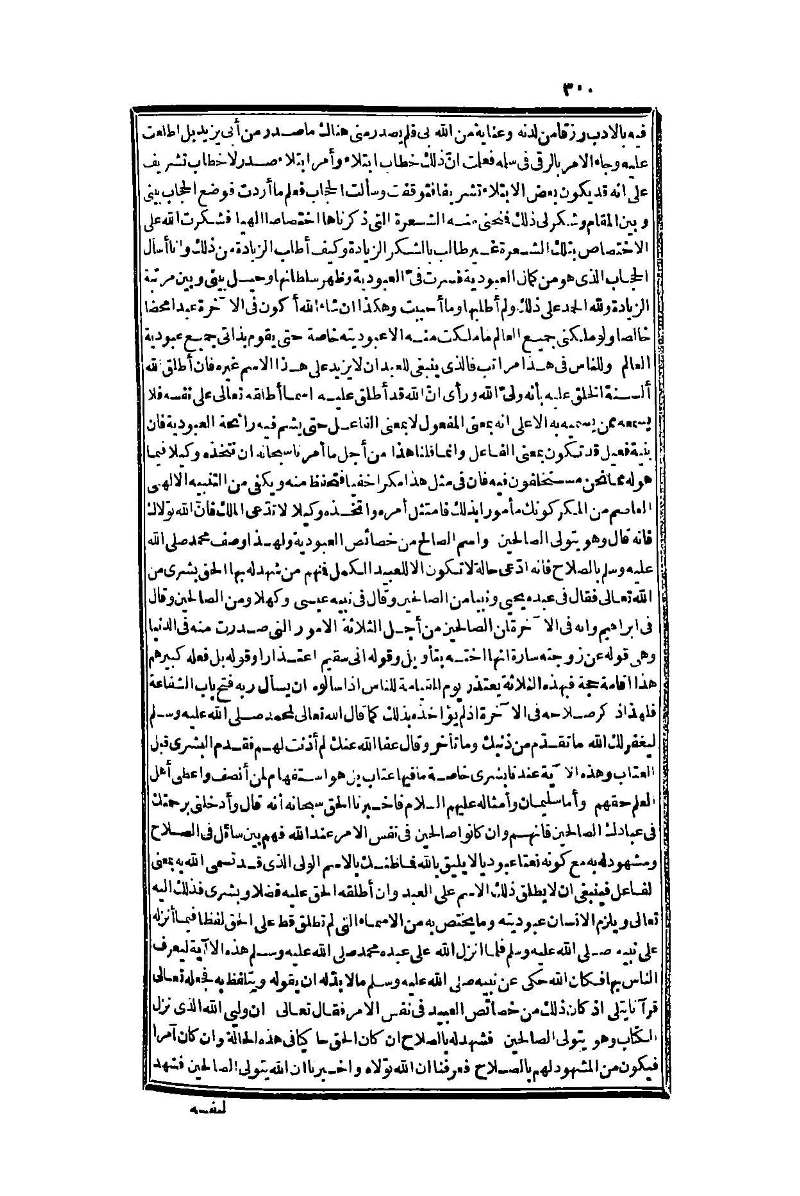 ٣٠٠
فيه بالادب رزقا من لدنه وعناية من الله بى فلم يصدر منى هناك ما صدر من أبى يزيد بل اطلعت
عليه وجاء الامر بالرقى فى سلمه فعلمت انّ ذلك خطاب ابتلاء وأمر ابتلاء صدر لا خطاب تشريف
على انه قد يكون بعض الابتلاء تشريفا فتوقفت وسألت الحجاب فعلم ما أردت فوضع الحجاب بينى
وبين المقام وشكر لى ذلك فنحنى منه الشعرة التى ذكرناها اختصاصا الهيا فشكرت الله على
الاختصاص بتلك الشعرة غير طالب بالشكر الزيادة وكيف أطلب الزيادة من ذلك وانا أسأل
الحجاب الذى هو من كمال العبودية فسرت فىّ العبودية وظهر سلطانها وحيل بينى وبين مرتبة
الزيادة ولله الحمد على ذلك ولم أطلبها وما أحببت وهكذا ان شاء الله أكون فى الآخرة عبدا محضا
خالصا ولو ملكنى جميع العالم ما ملكت منه الا عبوديته خاصة حتى يقوم بذاتى جميع عبودية
العالم وللناس فى هذا مراتب فالذى ينبغى للعبد ان لا يزيد على هذا الاسم غيره فان أطلق الله
ألسنة الخلق عليه بأنه ولىّ الله ورأى انّ الله قد أطلق عليه اسما أطلقه تعالى على نفسه فلا
يسمعه ممن يسميه به الا على انه بمعنى المفعول لا بمعنى الفاعل حتى يشم فيه رائحة العبودية فان
بنية فعيل قد تكون بمعنى الفاعل وانما قلنا هذا من أجل ما أمرنا سبحانه ان نتخذه وكيلا فيما
هو له مما نحن مستخلفون فيه فان فى مثل هذا مكرا خفيا فتحفظ منه ويكفى من التنبيه الالهى
العاصم من المكر كونك مأمورا بذلك فامتثل أمره واتخذه وكيلا لا تدّعى الملك فانّ الله تولاك
فانه قال وهو يتولى الصالحين واسم الصالح من خصائص العبودية ولهذا وصف محمد صلى الله
عليه وسلم بالصلاح فانه ادّعى حالة لا تكون الا للعبيد الكمل فنهم من شهد له بها الحق بشرى من
الله تعالى فقال فى عبده يحيى ونبيا من الصالحين وقال فى نبيه عيسى وكهلا ومن الصالحين وقال
فى ابراهيم وانه فى الآخرة لمن الصالحين من أجل الثلاثة الامور التى صدرت منه فى الدنيا
وهى قوله عن زوجته سارة انها اخته بتأويل وقوله انى سقيم اعتذارا وقوله بل فعله كبيرهم
هذا اقامة حجة فبهذه الثلاثة يعتذر يوم القيامة للناس اذا سألوه ان يسأل ربه فتح باب الشفاعة
فلهذا ذكر صلاحه فى الآخرة اذ لم يؤاخذه بذلك كما قال الله تعالى لمحمد صلى الله عليه وسلم
ليغفر لك الله ما تقدّم من ذنبك وما تأخر وقال عفا الله عنك لم أذنت لهم فقدم البشرى قبل
العتاب وهذه الآية عندنا بشرى خاصة ما فيها عتاب بل هو استفهام لمن أنصف واعطى أهل
العلم حقهم وأما سليمان وأمثاله عليهم السلام فاخبرنا الحق سبحانه أنه قال وأدخلنى برحمتك
فى عبادك الصالحين فانهم وان كانوا صالحين فى نفس الامر عند الله فهم بين سائل فى الصلاح
ومشهود له به مع كونه نعتا عبوديا لا يليق بالله فما ظنك بالاسم الولى الذى قد تسمى الله به بمعنى
الفاعل فينبغى ان لا يطلق ذلك الاسم على العبد وان أطلقه الحق عليه فضلا وبشرى فذلك اليه
تعالى ويلزم الانسان عبوديته وما يختص به من الاسماء التى لم تطلق قط على الحق لفظا فيما أنزله
على نبيه صلى الله عليه وسلم فلما انزل الله على عبده محمد صلى الله عليه وسلم هذه الآية ليعرف
الناس بها فكان الله حكى عن نبيه صلى الله عليه وسلم ما لا بدّ له ان يقوله ويتلفظ به فجعله تعالى
قرآنا يتلى اذ كان ذلك من خصائص العبيد فى نفس الامر فقال تعالى ان وليى الله الذى نزل
الكتاب وهو يتولى الصالحين فشهد له بالصلاح ان كان الحق حاكيا فى هذه الحالة وان كان آمرا
فيكون من المشهود لهم بالصلاح فعرفنا ان الله تولاه واخبرنا ان الله يتولى الصالحين فشهد
لنفسه